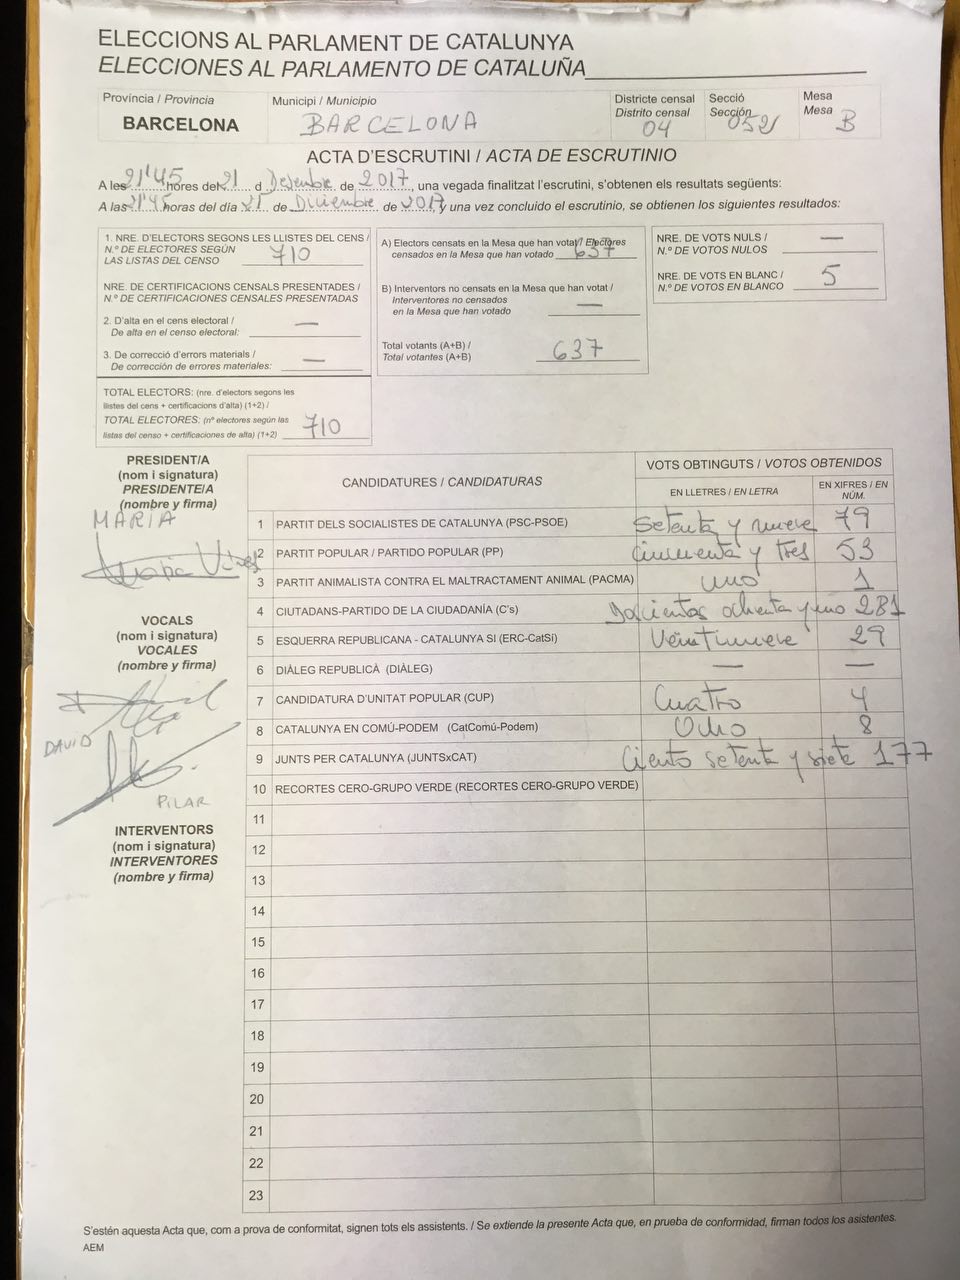 ELECCIONS AL PARLAMENT DE CATALUNYA
ELECCIONES AL PARLAMENTO DE CATALUÑA
Província / Provincia
BARCELONA
Municipi / Municipio
BARCELONA
Districte censal
Distrito censal
04
Secció
Sección
052
Mesa
Mesa
B
ACTA D'ESCRUTINI / ACTA DE ESCRUTINIO
A les 21'45 hores del 21 d Desembre de 2017, una vegada finalitzat l'escrutini, s'obtenen els resultats següents:
A las 21'45 horas del día 21 de Diciembre de 2017, y una vez concluido el escrutinio, se obtienen los siguientes resultados:
1. NRE. D'ELECTORS SEGONS LES LLISTES DEL CENS /
N.º DE ELECTORES SEGÚN
LAS LISTAS DEL CENSO 710
NRE. DE CERTIFICACIONS CENSALS PRESENTADES /
N.º DE CERTIFICACIONES CENSALES PRESENTADAS
2. D'alta en el cens electoral /
De alta en el censo electoral: —
3. De correcció d'errors materials /
De corrección de errores materiales: —
TOTAL ELECTORS: (nre. d'electors segons les
llistes del cens + certificacions d'alta) (1+2) /
TOTAL ELECTORES: (nº electores según las
listas del censo + certificaciones de alta) (1+2) 710
A) Electors censats en la Mesa que han votat / Electores
censados en la Mesa que han votado 637
B) Interventors no censats en la Mesa que han votat /
Interventores no censados
en la Mesa que han votado —
Total votants (A+B) /
Total votantes (A+B) 637
NRE. DE VOTS NULS /
N.º DE VOTOS NULOS —
NRE. DE VOTS EN BLANC /
N.º DE VOTOS EN BLANCO 5
PRESIDENT/A
(nom i signatura)
PRESIDENTE/A
(nombre y firma)
MARIA
VOCALS
(nom i signatura)
VOCALES
(nombre y firma)
DAVID
PILAR
INTERVENTORS
(nom i signatura)
INTERVENTORES
(nombre y firma)
CANDIDATURES / CANDIDATURAS
VOTS OBTINGUTS / VOTOS OBTENIDOS
EN LLETRES / EN LETRA
EN XIFRES / EN
NÚM.
1 PARTIT DELS SOCIALISTES DE CATALUNYA (PSC-PSOE) Setenta y nueve 79
2 PARTIT POPULAR / PARTIDO POPULAR (PP) Cincuenta y tres 53
3 PARTIT ANIMALISTA CONTRA EL MALTRACTAMENT ANIMAL (PACMA) uno 1
4 CIUTADANS-PARTIDO DE LA CIUDADANÍA (C's) Doscientos ochenta y uno 281
5 ESQUERRA REPUBLICANA - CATALUNYA SI (ERC-CatSí) Veintinueve 29
6 DIÀLEG REPUBLICÀ (DIÀLEG) — —
7 CANDIDATURA D'UNITAT POPULAR (CUP) Cuatro 4
8 CATALUNYA EN COMÚ-PODEM (CatComú-Podem) Ocho 8
9 JUNTS PER CATALUNYA (JUNTSxCAT) Ciento setenta y siete 177
10 RECORTES CERO-GRUPO VERDE (RECORTES CERO-GRUPO VERDE)
11
12
13
14
15
16
17
18
19
20
21
22
23
S'estén aquesta Acta que, com a prova de conformitat, signen tots els assistents. / Se extiende la presente Acta que, en prueba de conformidad, firman todos los asistentes.
AEM